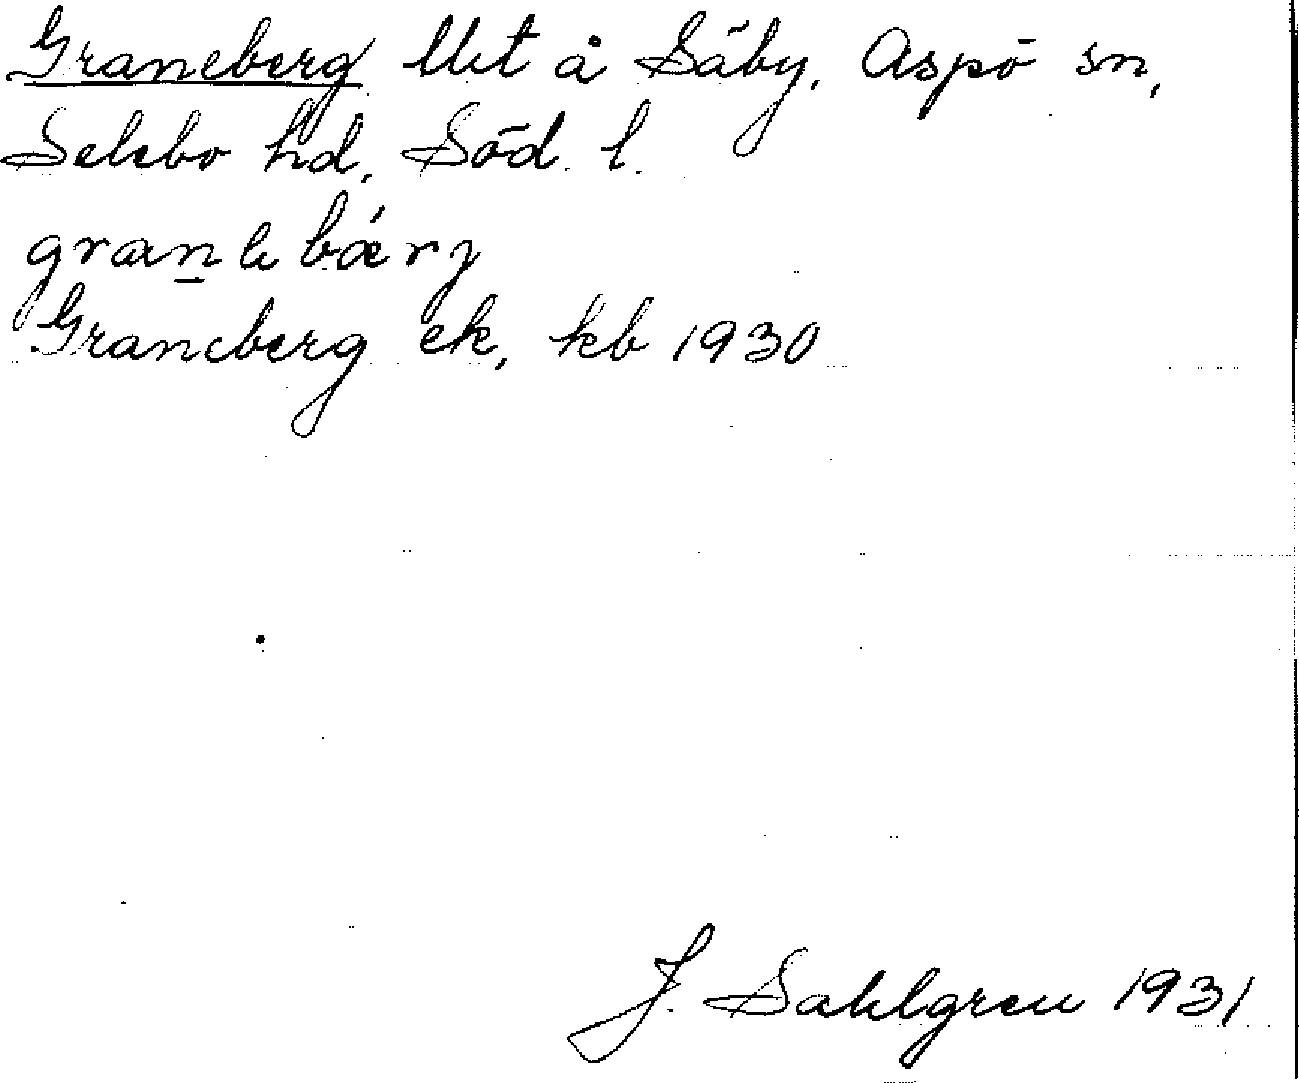 Graneberg lht å Säby, Aspö sn,
Selebo hd, Söd. l.
Graneberg ek, kb 1930
J. Sahlgren 1931